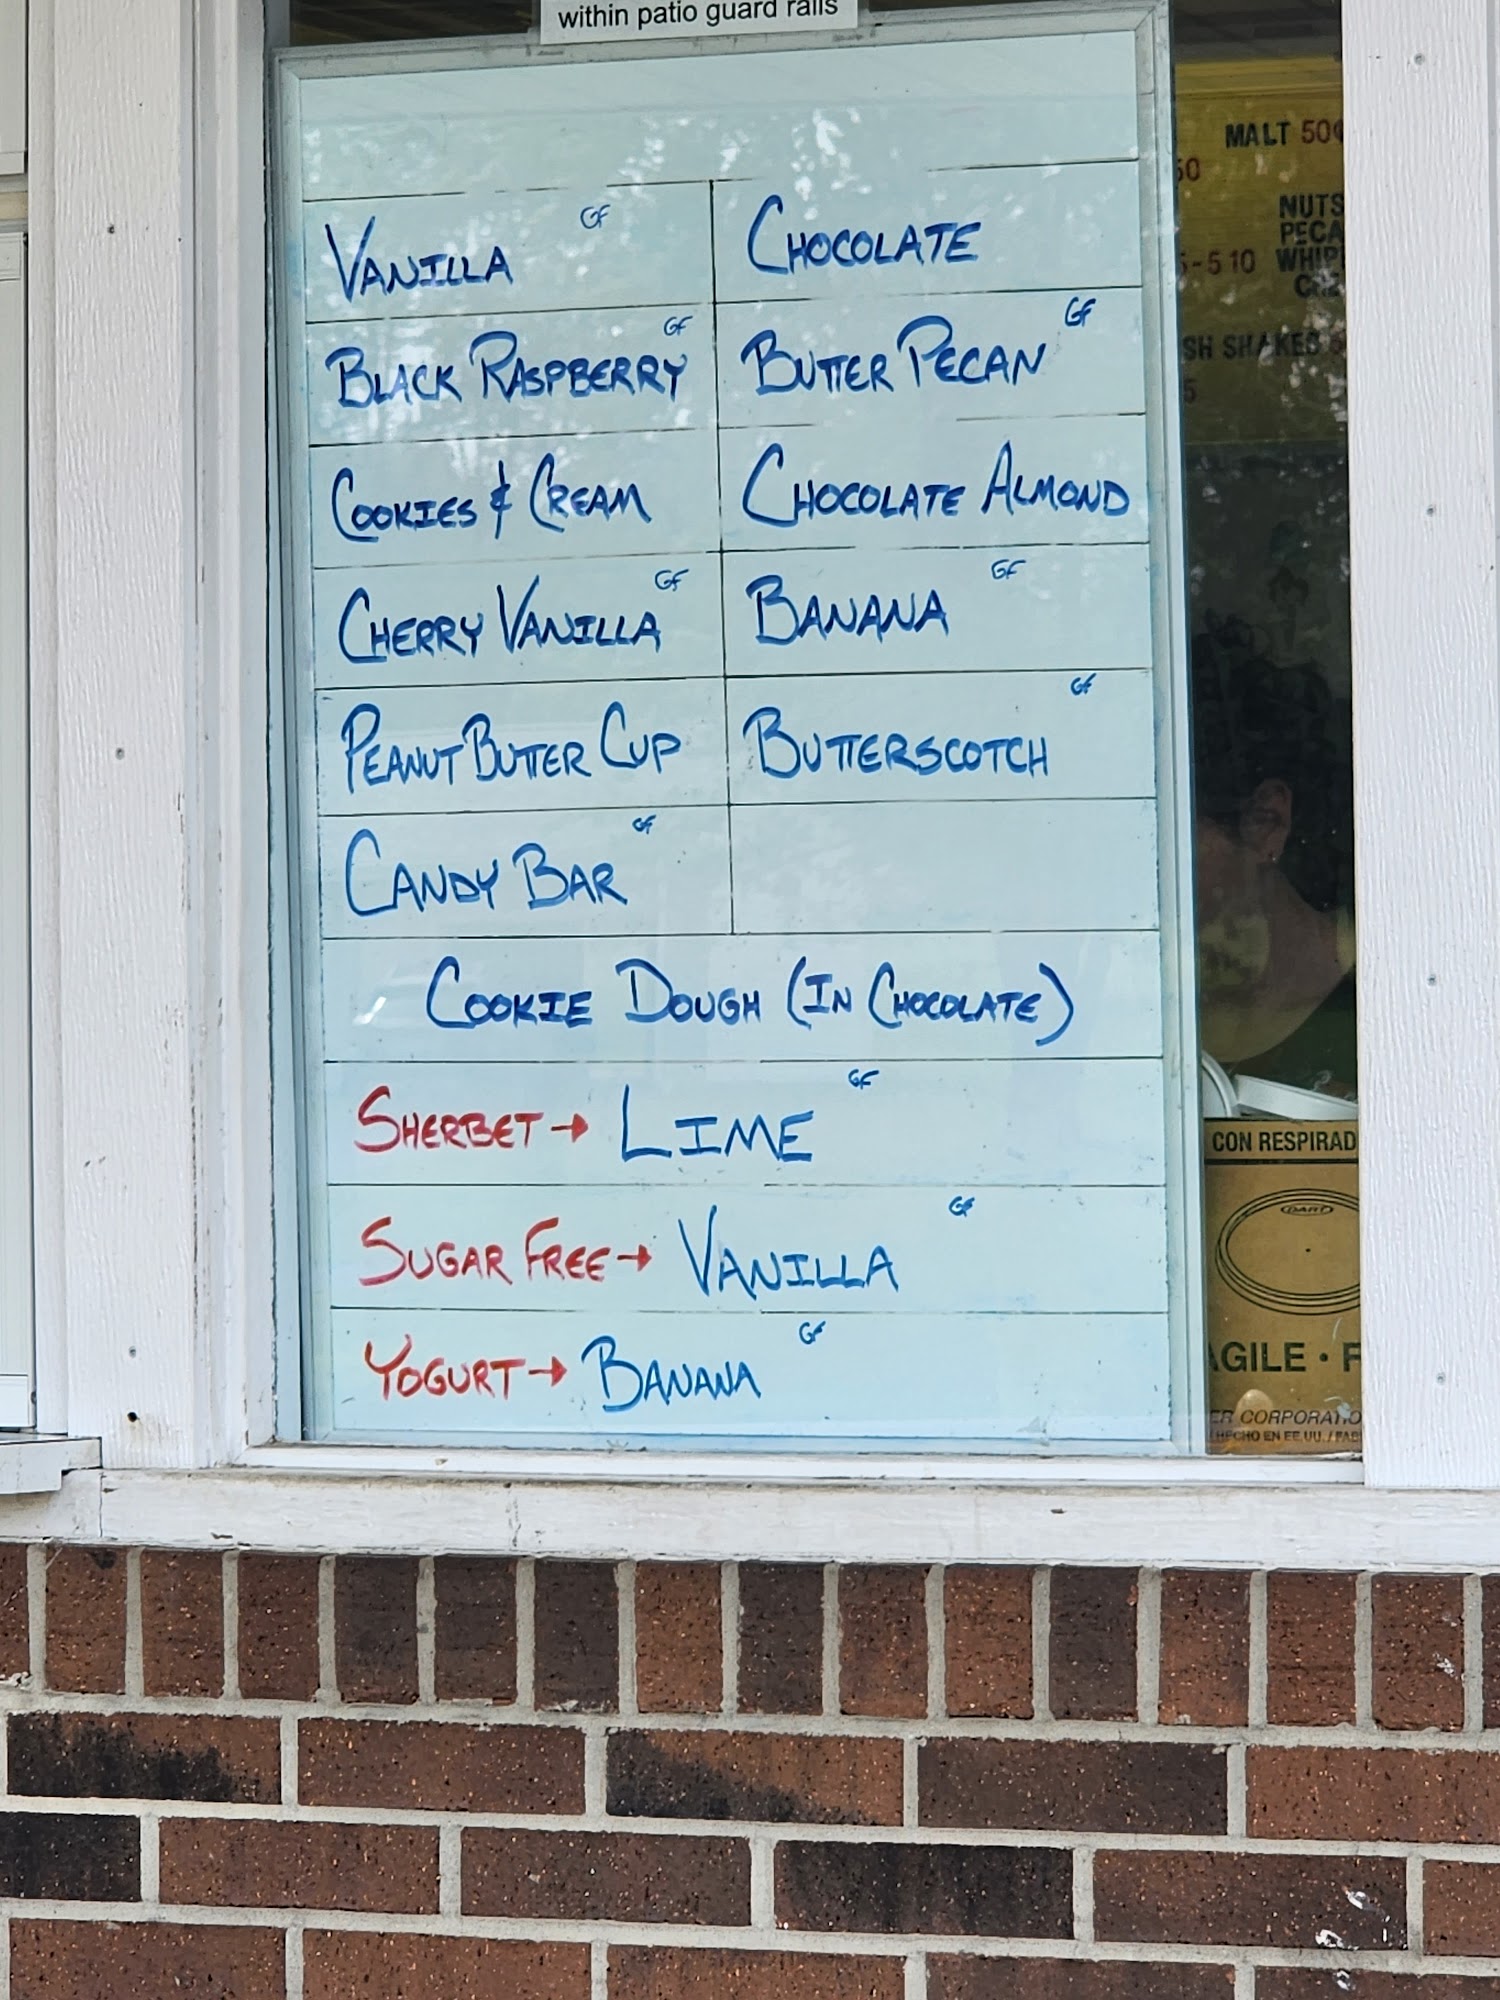 within patio guard rails
VANILLA GF
CHOCOLATE
BLACK RASPBERRY GF
BUTTER PECAN GF
COOKIES & CREAM
CHOCOLATE ALMOND
CHERRY VANILLA GF
BANANA GF
PEANUT BUTTER CUP
BUTTERSCOTCH GF
CANDY BAR GF
COOKIE DOUGH (IN CHOCOLATE)
SHERBET → LIME GF
SUGAR FREE → VANILLA GF
YOGURT → BANANA GF
MALT 50¢
50
NUTS
-5 10
SHAKES
5
CON
DART
CORPORATIO
HECHO EN EE.UU./